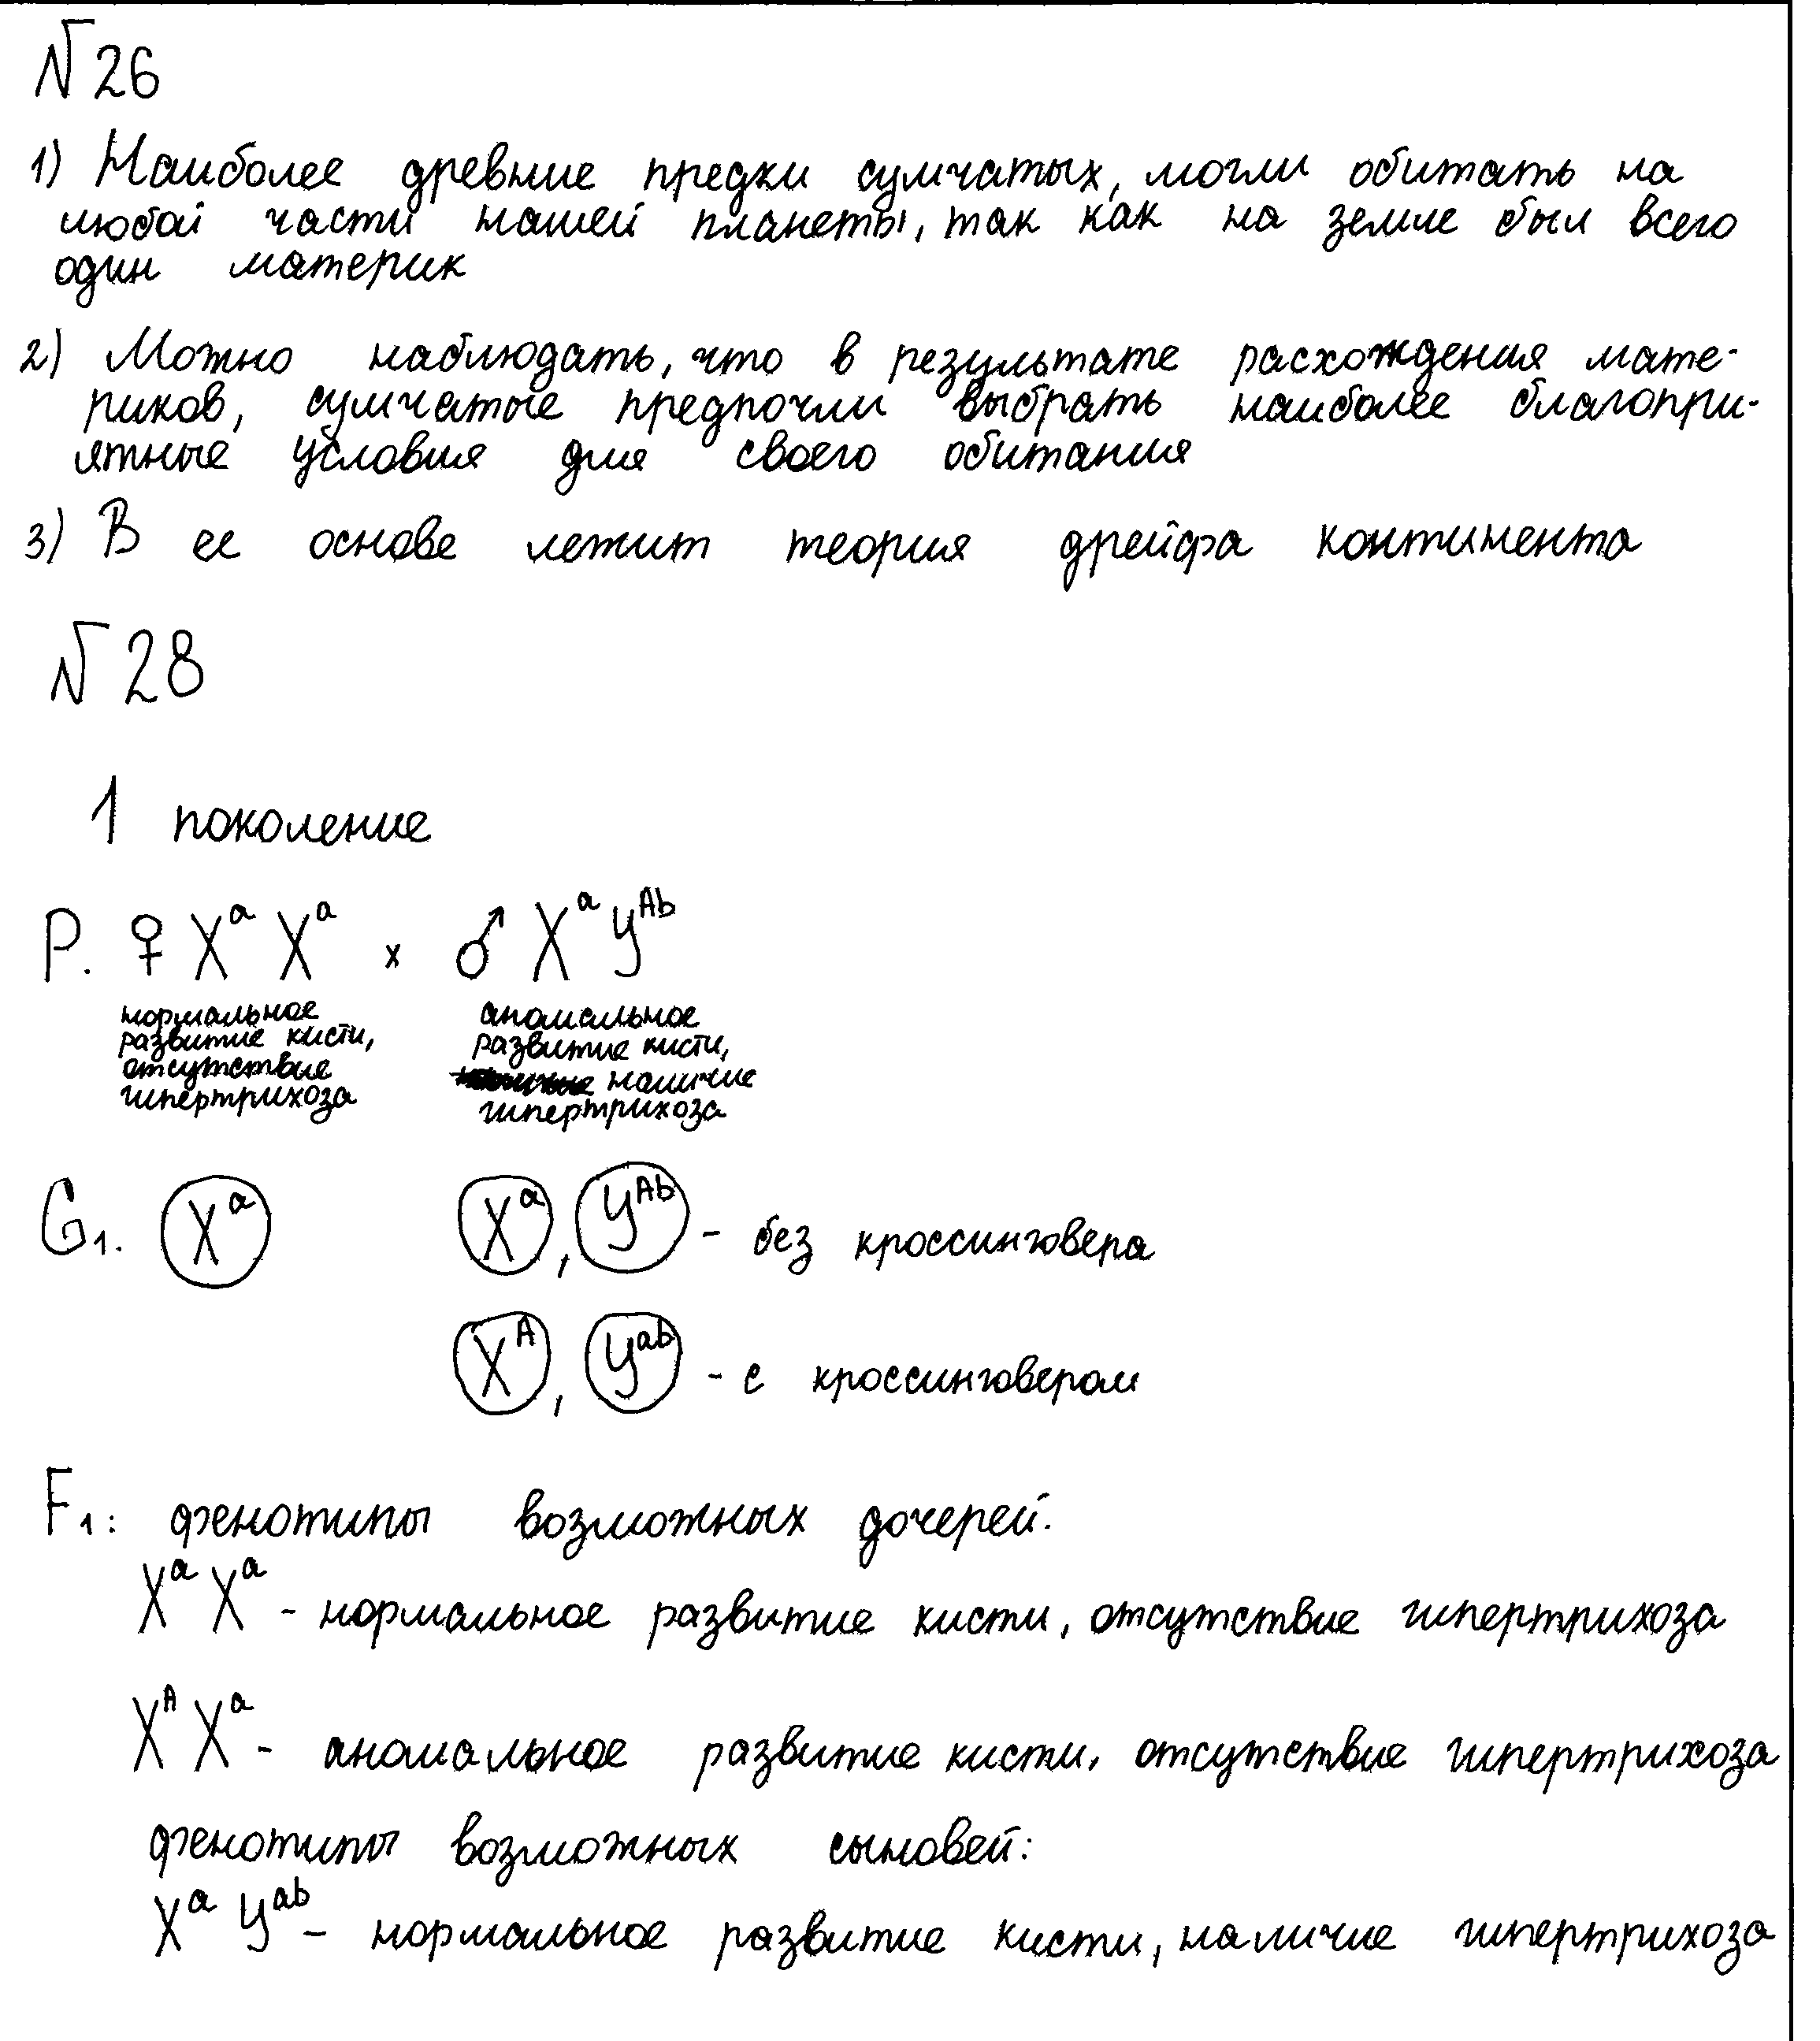 №26
1) Наиболее древние предки сумчатых, могли обитать на
любой части нашей планеты, так как на земле был всего
один материк
2) Можно наблюдать, что в результате расхождения мате-
риков, сумчатые предпочли выбрать наиболее благопри-
ятные условия для своего обитания
3) В ее основе лежит теория дрейфа континента
№28
1 поколение
P. ♀ XᵃXᵃ x ♂ XᵃYᴬᵇ
нормальное развитие кисти, отсутствие гипертрихоза
аномальное развитие кисти, наличие гипертрихоза
G₁. Xᵃ Xᵃ, Yᴬᵇ - без кроссинговера
Xᴬ, Yᵃᵇ - с кроссинговером
F₁: фенотипы возможных дочерей:
XᵃXᵃ - нормальное развитие кисти, отсутствие гипертрихоза
XᴬXᵃ - аномальное развитие кисти, отсутствие гипертрихоза
фенотипы возможных сыновей:
XᵃYᵃᵇ - нормальное развитие кисти, наличие гипертрихоза